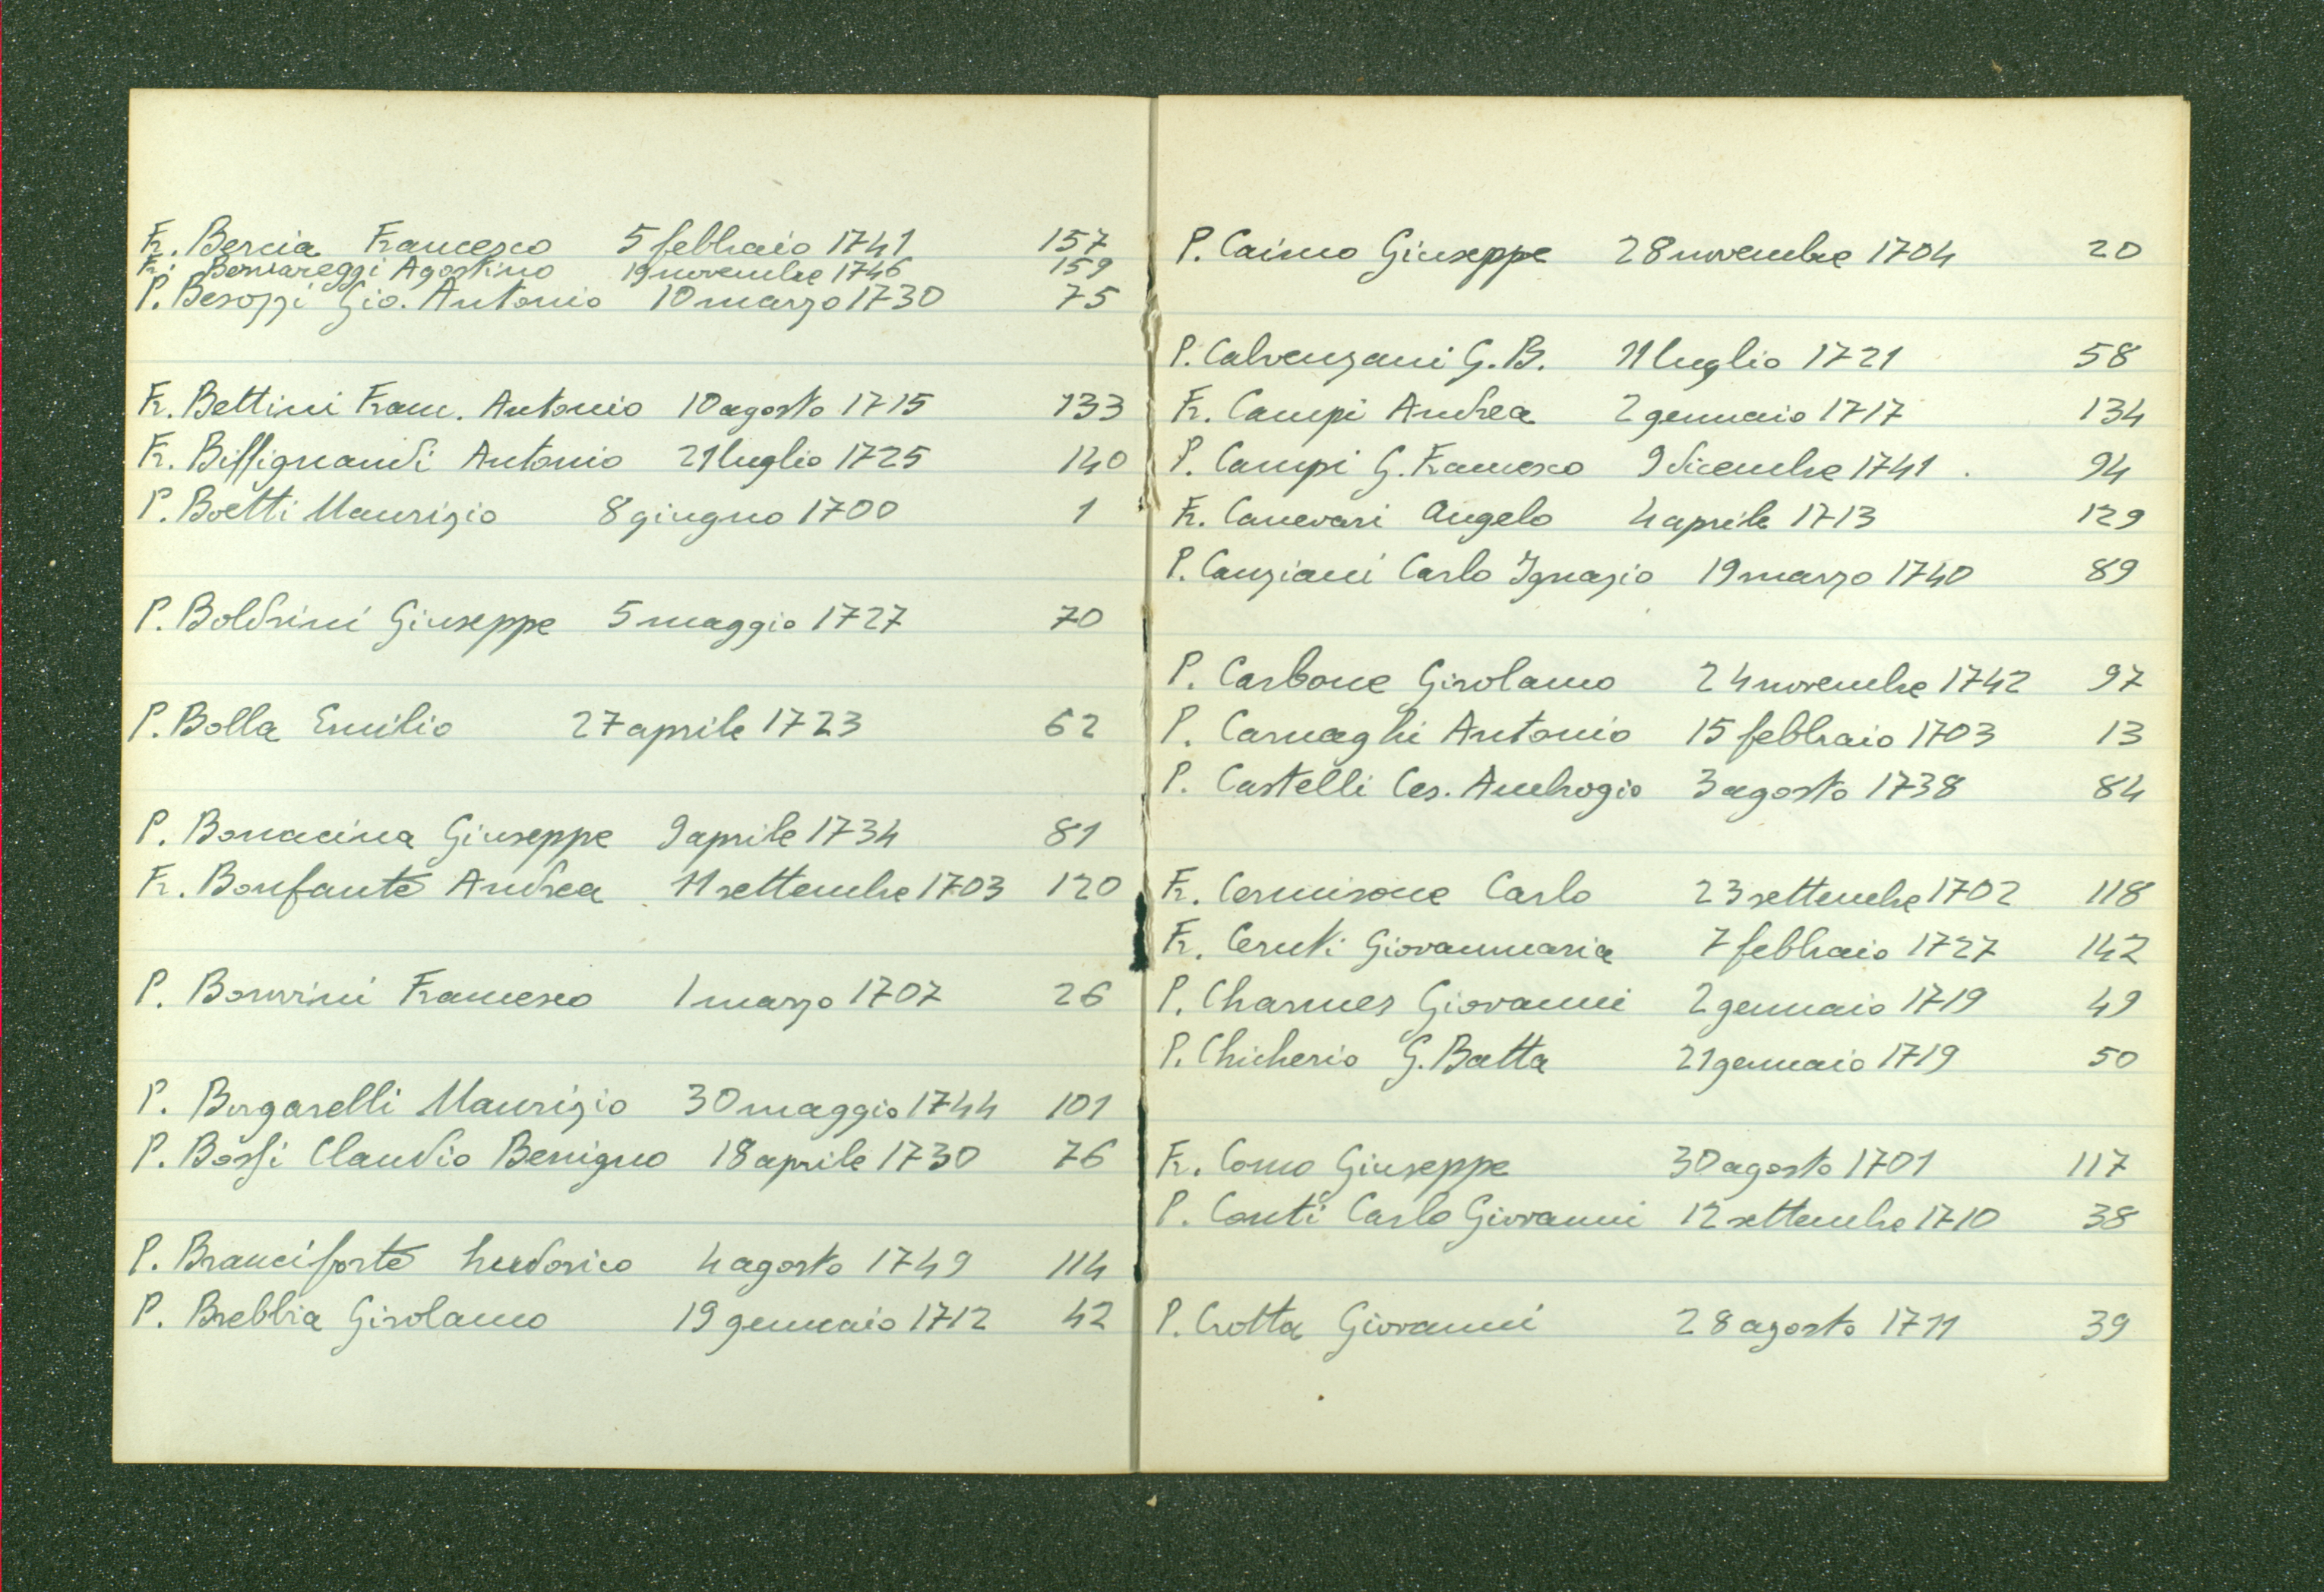 Fr. Bercia Francesco 5 febbraio 1741 157
Fr. Bernareggi Agostino 19 novembre 1746 159
P. Besozzi Gio. Antonio 10 marzo 1730 75
Fr. Bettini Fran. Antonio 10 agosto 1715 133
Fr. Biffignandi Antonio 21 luglio 1725 140
P. Boetti Maurizio 8 giugno 1700 1
P. Boldrini Giuseppe 5 maggio 1727 70
P. Bolla Emilio 27 aprile 1723 62
P. Bonacina Giuseppe 9 aprile 1734 81
Fr. Bonfante Andrea 11 settembre 1703 120
P. Bonvini Francesco 1 marzo 1707 26
P. Borgarelli Maurizio 30 maggio 1744 101
P. Bossi Claudio Benigno 18 aprile 1730 76
P. Branciforte Ludovico 4 agosto 1749 114
P. Brebbia Girolamo 19 gennaio 1712 42
P. Caimo Giuseppe 28 novembre 1704 20
P. Calvenzani G. B. 11 luglio 1721 58
Fr. Campi Andrea 2 gennaio 1717 134
P. Campi G. Francesco 9 dicembre 1741 94
Fr. Canevari Angelo 4 aprile 1713 129
P. Canziani Carlo Ignazio 19 marzo 1740 89
P. Carbone Girolamo 24 novembre 1742 97
P. Carnaghi Antonio 15 febbraio 1703 13
P. Castelli Ces. Ambrogio 3 agosto 1738 84
Fr. Cermisone Carlo 23 settembre 1702 118
Fr. Ceruti Giovanmaria 7 febbraio 1727 142
P. Charmes Giovanni 2 gennaio 1719 49
P. Chicherio G. Batta 21 gennaio 1719 50
Fr. Como Giuseppe 30 agosto 1701 117
P. Conti Carlo Giovanni 12 settembre 1710 38
P. Crotta Giovanni 28 agosto 1711 39